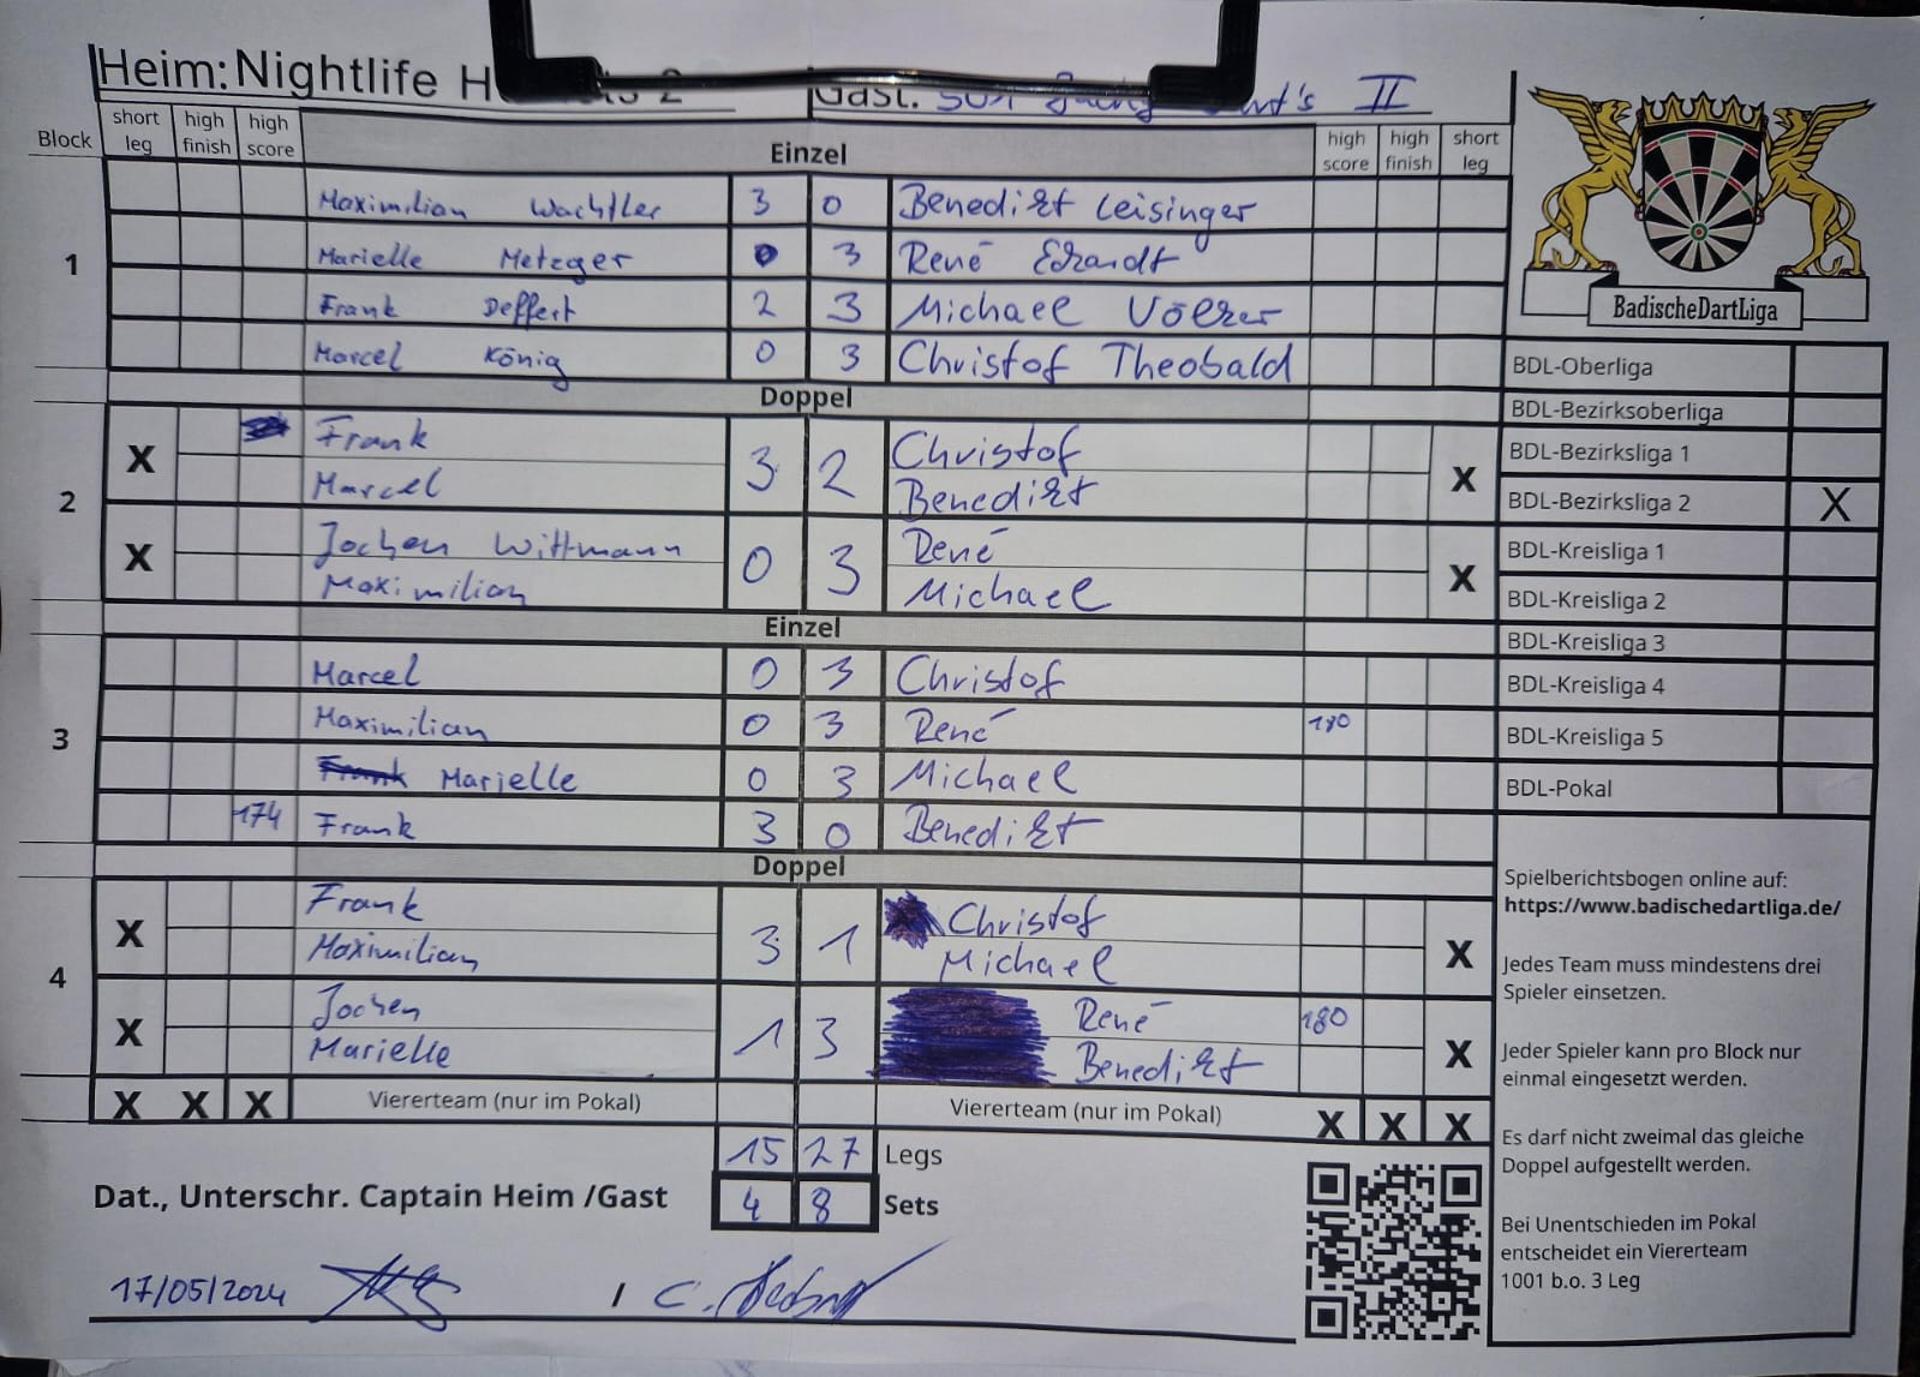 Heim: Nightlife H
Gast: 501 II
Block short leg high finish high score Einzel high score high finish short leg
1
Maximilian Wachtler 3 0 Benedikt Leisinger
Marielle Metzger 0 3 René Erhardt
Frank Deffert 2 3 Michael Völker
Marcel König 0 3 Christof Theobald
Doppel
2
X Frank 3 2 Christof X
Marcel Benedikt
X Jochen Wittmann 0 3 René X
Maximilian Michael
Einzel
3
Marcel 0 3 Christof
Maximilian 0 3 René 180
Frank Marielle 0 3 Michael
174 Frank 3 0 Benedikt
Doppel
4
X Frank 3 1 Christof X
Maximilian Michael
X Jochen 1 3 René 180 X
Marielle Benedikt
X X X Viererteam (nur im Pokal) Viererteam (nur im Pokal) X X X
15 27 Legs
Dat., Unterschr. Captain Heim /Gast 4 8 Sets
17/05/2024 / C.
BadischeDartLiga
BDL-Oberliga
BDL-Bezirksoberliga
BDL-Bezirksliga 1
BDL-Bezirksliga 2 X
BDL-Kreisliga 1
BDL-Kreisliga 2
BDL-Kreisliga 3
BDL-Kreisliga 4
BDL-Kreisliga 5
BDL-Pokal
Spielberichtsbogen online auf:
https://www.badischedartliga.de/
Jedes Team muss mindestens drei
Spieler einsetzen.
Jeder Spieler kann pro Block nur
einmal eingesetzt werden.
Es darf nicht zweimal das gleiche
Doppel aufgestellt werden.
Bei Unentschieden im Pokal
entscheidet ein Viererteam
1001 b.o. 3 Leg